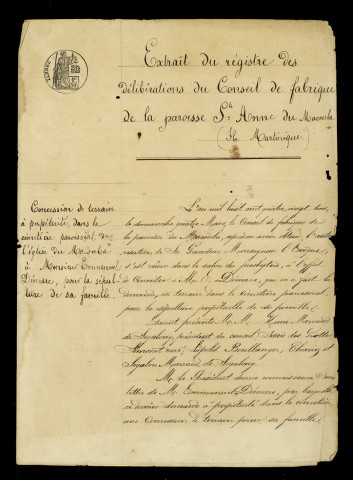 Extrait du régistre des
délibérations du Conseil de fabrique
de la paroisse Ste Anne du Macouba
(Île Martinique)
Concession de terrain
à perpétuité, dans le
cimetière paroissial de
l'église du Macouba
à Monsieur Emmanuel
Démare, pour la sépul-
ture de sa famille.
L'an mil huit cent quatre vingt
le dimanche quatre Mars, le Conseil de fabrique de
la paroisse du Macouba, après avoir
de Sa Grandeur Monseigneur l'Évêque
s'est réuni dans le salon du presbytère, à l'effet
de Concéder à Mr E. Démare, qui en a fait la
demande, un terrain dans le Cimetière paroissial,
pour la sépulture perpétuelle de sa famille.
Étaient présents M.M.
président du conseil
Léopold Boullanger, Charles et
Mr le Président donne connaissance d'une
lettre de Mr Emmanuel Démare, par laquelle
ce dernier demande à perpétuité dans le cimetière,
une concession de terrain pour sa famille